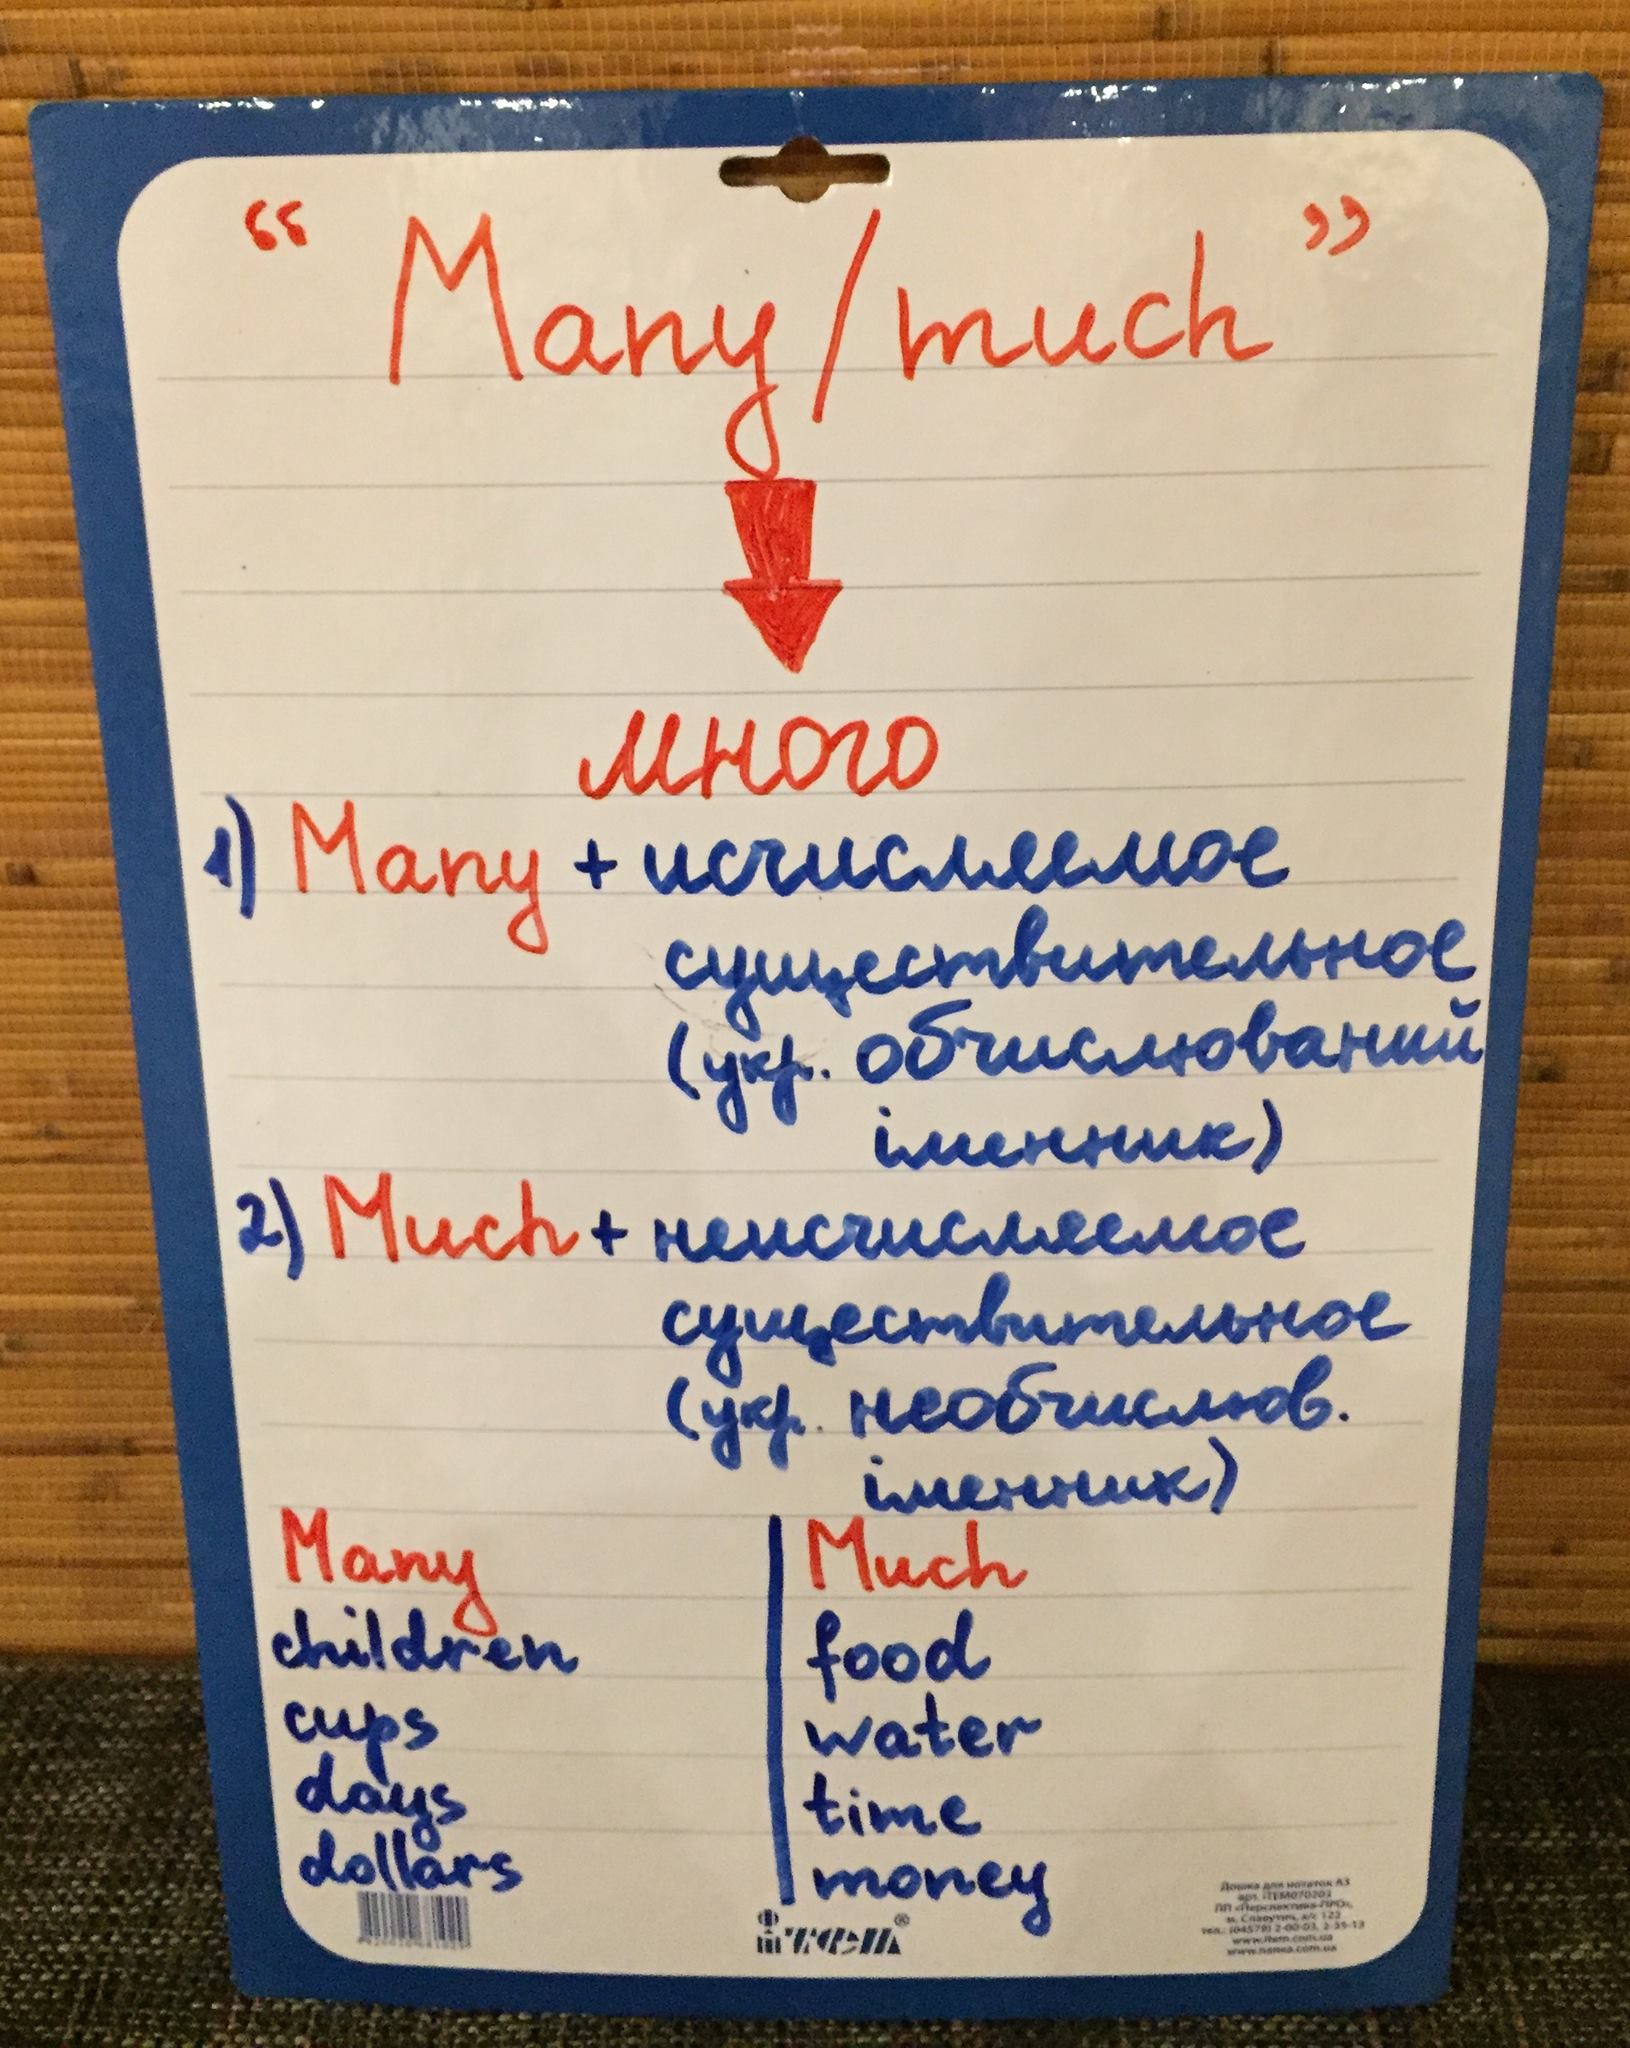 “Many/much”
много
1) Many + исчисляемое
существительное
(укр. обчислюваний
іменник)
2) Much + неисчисляемое
существительное
(укр. необчислюв.
іменник)
Many
children
cups
days
dollars
Much
food
water
time
money
ітем®
Дошка для нотаток А3
арт. iTEM070203
ПП «Перспектива-ПРО»,
м. Славутич, а/с 122
тел.: (04579) 2-00-03, 2-35-13
www.item.com.ua